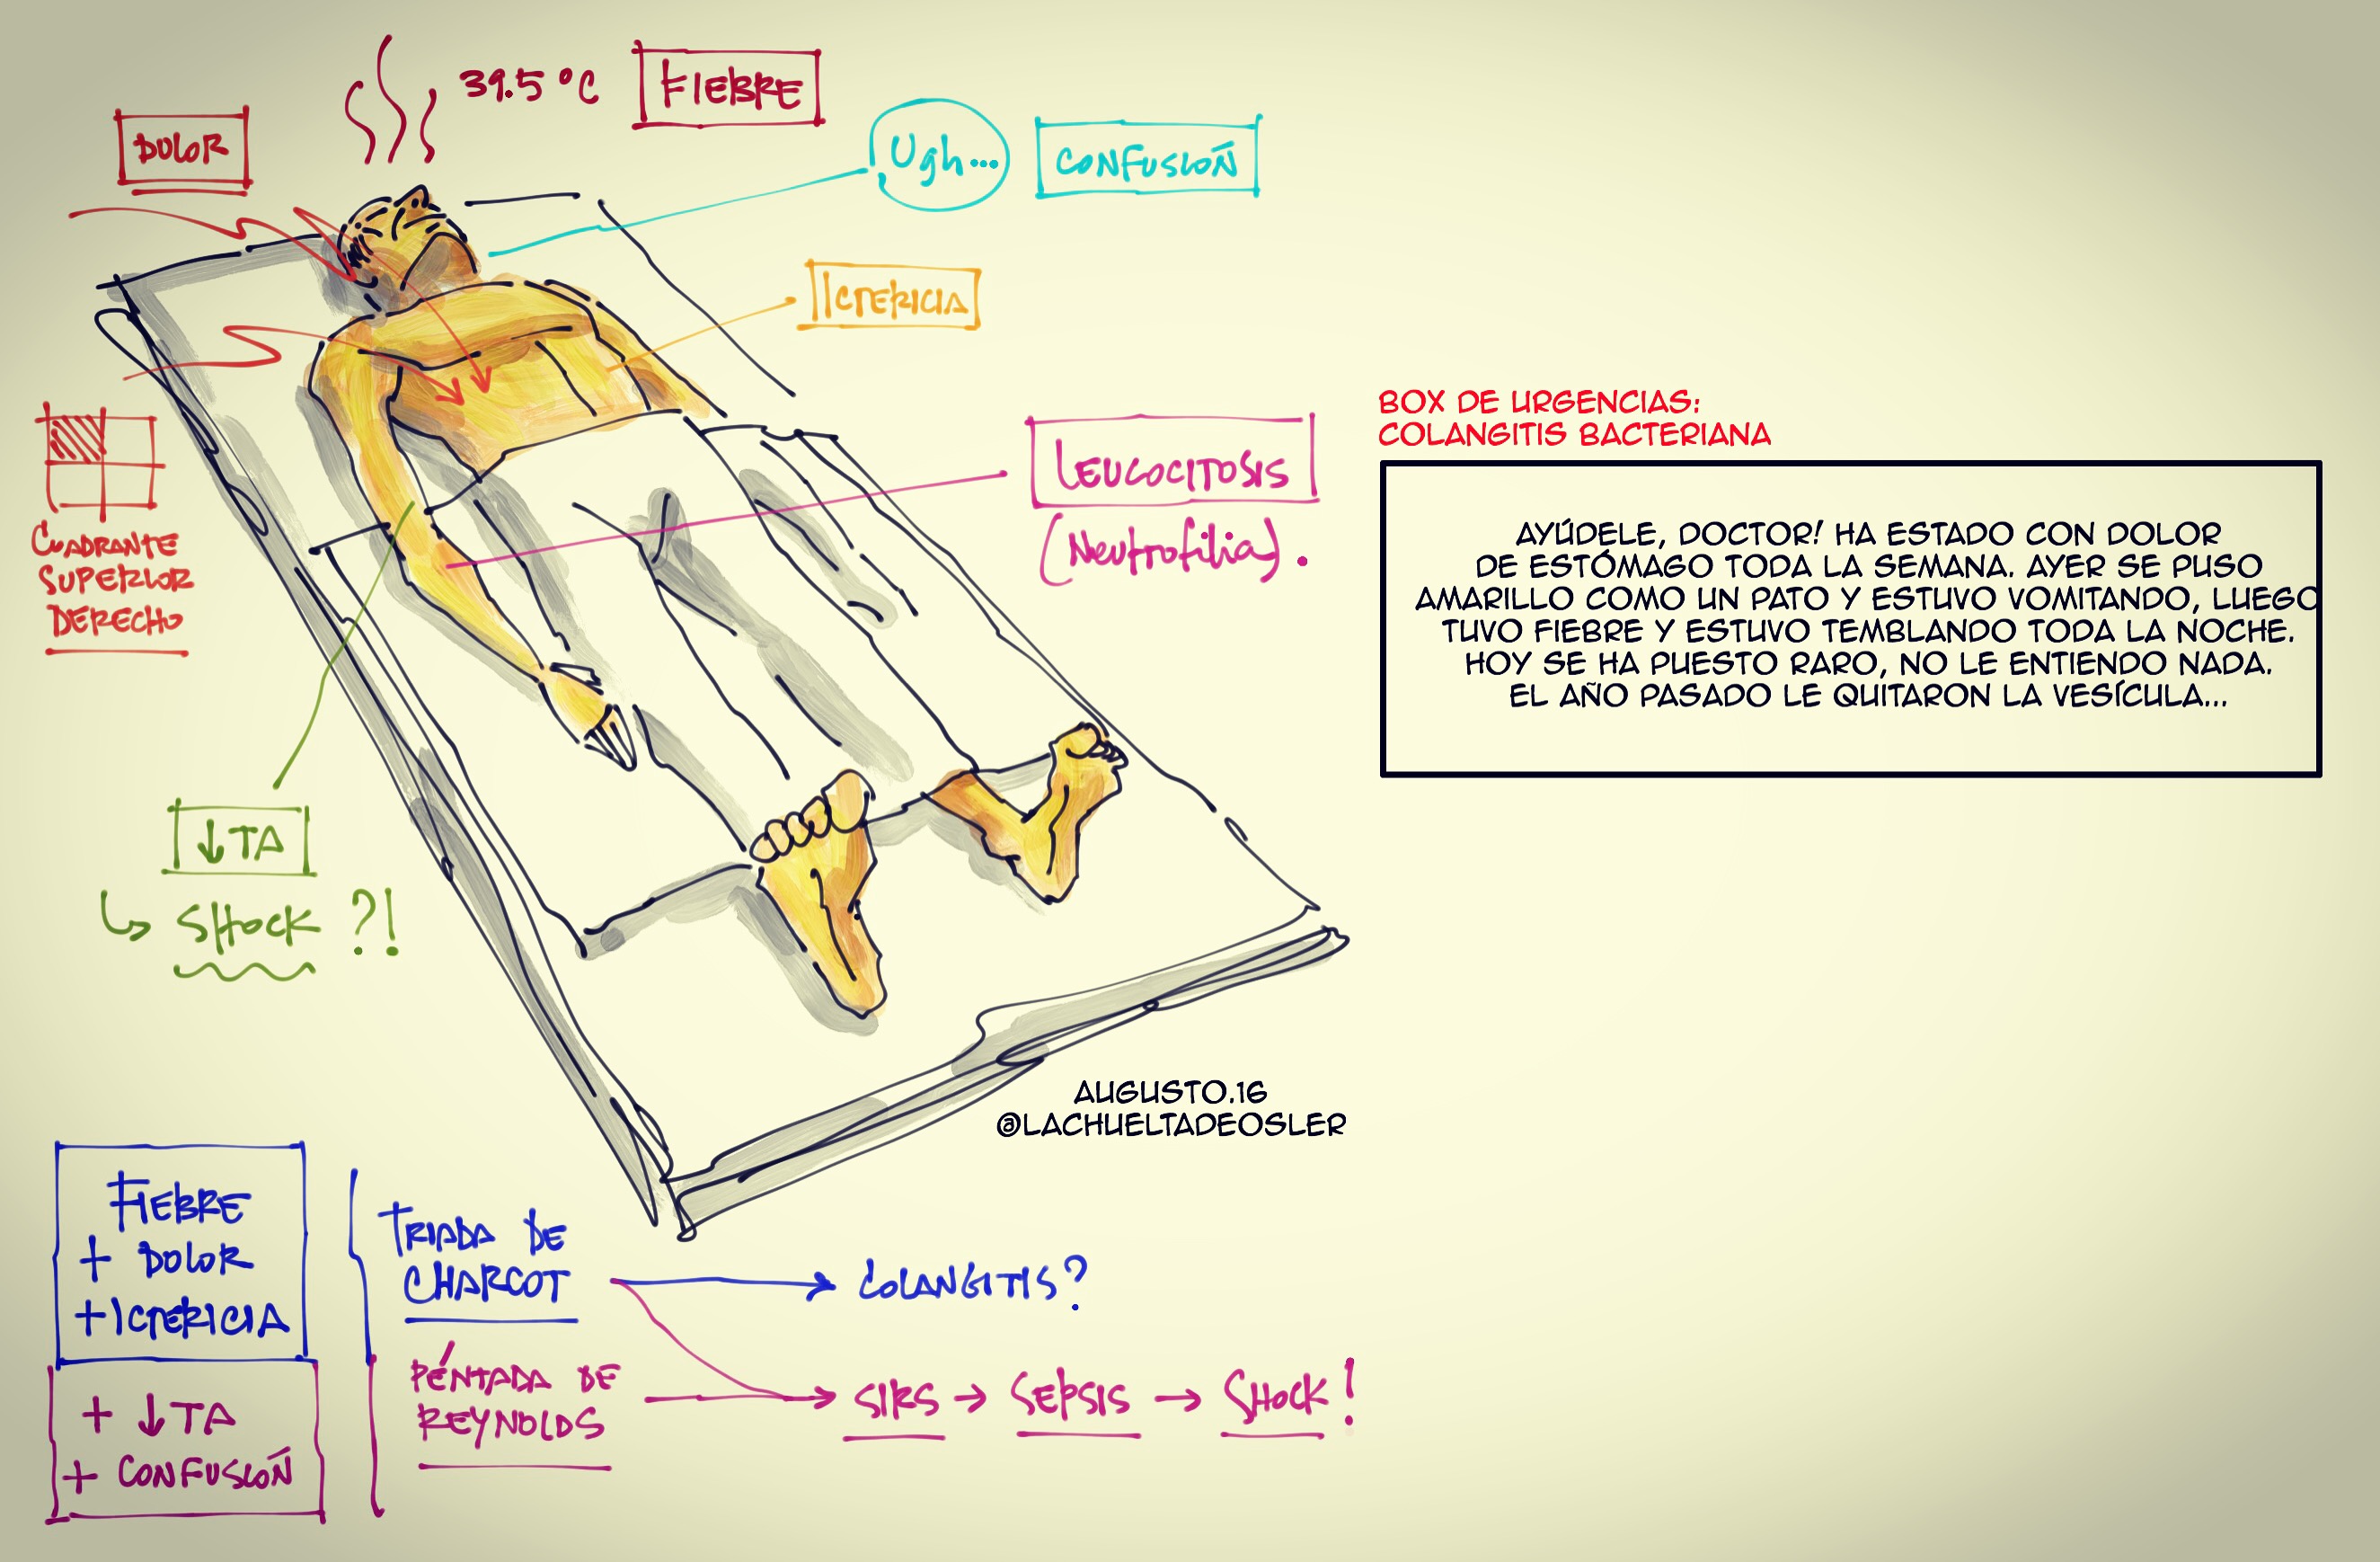 39.5 °C
FIEBRE
DOLOR
Ugh...
CONFUSIÓN
ICTERICIA
CUADRANTE
SUPERIOR
DERECHO
LEUCOCITOSIS
(Neutrofilia).
↓TA
↳ SHOCK ?!
BOX DE URGENCIAS:
COLANGITIS BACTERIANA
AYÚDELE, DOCTOR! HA ESTADO CON DOLOR
DE ESTÓMAGO TODA LA SEMANA. AYER SE PUSO
AMARILLO COMO UN PATO Y ESTUVO VOMITANDO, LUEGO
TUVO FIEBRE Y ESTUVO TEMBLANDO TODA LA NOCHE.
HOY SE HA PUESTO RARO, NO LE ENTIENDO NADA.
EL AÑO PASADO LE QUITARON LA VESÍCULA...
AUGUSTO.16
@LACHUELTADEOSLER
FIEBRE
+ DOLOR
+ICTERICIA
TRIADA DE
CHARCOT
COLANGITIS?
+ ↓TA
+ CONFUSIÓN
PÉNTADA DE
REYNOLDS
→ SIRS → SEPSIS → SHOCK!